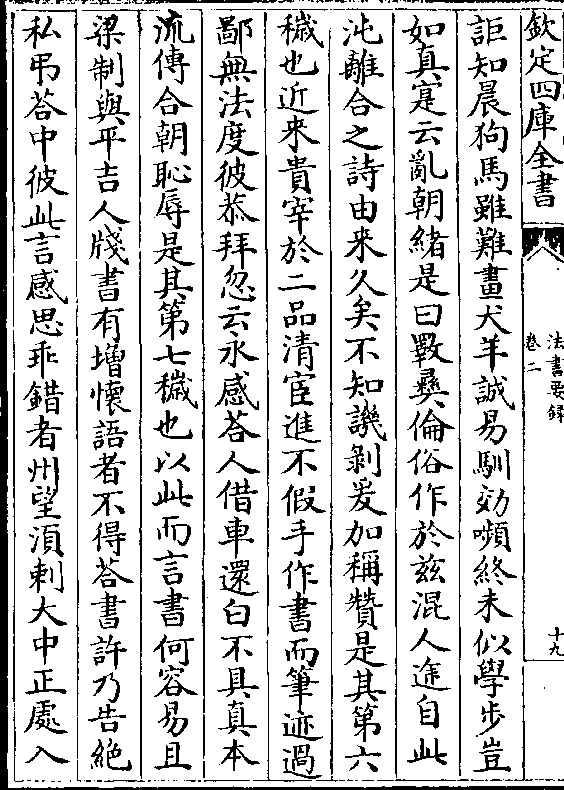 欽定四庫全書
法書要録
卷二
十九
詎知晨狗馬雖難畫犬羊誠易馴効嚬終未似學步豈
如真寔云亂朝緒是曰斁彝倫俗作於兹混人途自此
沌離合之詩由來久矣不知譏剝爰加稱贊是其第六
穢也近來貴宰於二品清宦進不假手作書而筆迹過
鄙無法度彼恭拜忽云永感荅人借車還白不具真本
流傳合朝恥辱是其第七穢也以此而言書何容易且
梁制與平吉人牋書有增懷語者不得荅書許乃告絶
私弔荅中彼此言感思乖錯者州望湏刺大中正處入